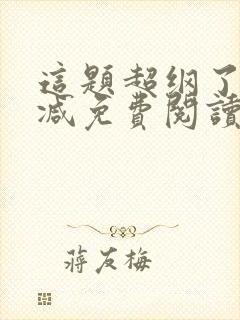 這題超纲了
減免費閱讀
蔣友梅